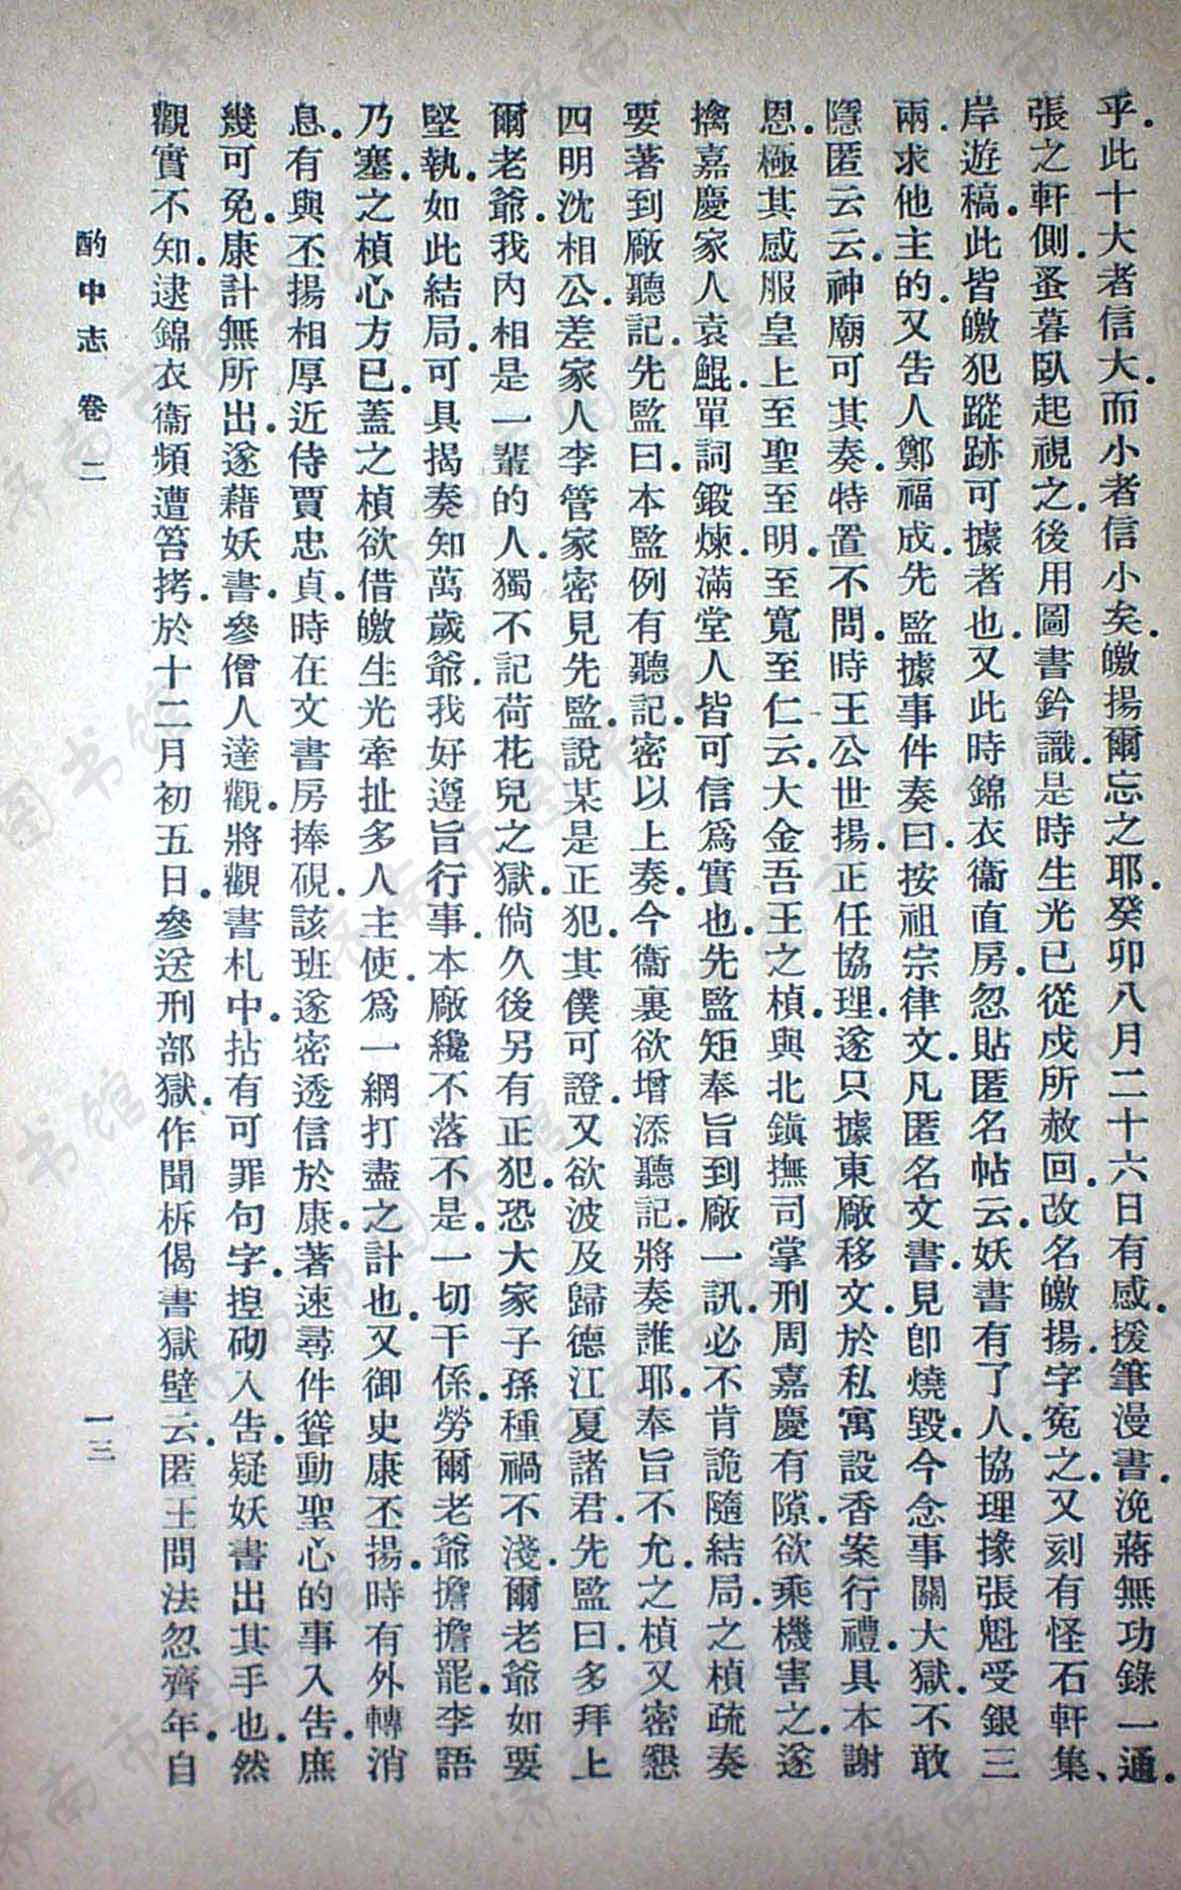 乎.此十大者信大.而小者信小矣.皦揚爾忘之耶.癸卯八月二十六日有感.援筆漫書.浼蔣無功錄一通.
張之軒側.蚤暮臥起視之.後用圖書鈐識.是時生光已從戍所赦回.改名皦揚.字冤之.又刻有怪石軒集、
岸遊稿.此皆皦犯蹤跡可據者也.又此時錦衣衞直房.忽貼匿名帖云.妖書有了人.協理掾張魁受銀三
兩.求他主的.又告人鄭福成.先監據事件奏曰.按祖宗律文.凡匿名文書.見卽燒毀.今念事關大獄.不敢
隱匿云云.神廟可其奏.特置不問.時王公世揚.正任協理.遂只據東廠移文.於私寓設香案行禮.具本謝
恩.極其感服皇上至聖至明.至寬至仁云.大金吾王之楨.與北鎭撫司掌刑周嘉慶有隙.欲乘機害之.遂
擒嘉慶家人袁鯤.單詞鍛煉.滿堂人皆可信爲實也.先監矩奉旨到廠一訊.必不肯詭隨結局.之楨疏奏
要著到廠聽記.先監曰.本監例有聽記.密以上奏.今衞裏欲增添聽記.將奏誰耶.奉旨不允.之楨又密懇
四明沈相公.差家人李管家密見先監.說某是正犯.其僕可證.又欲波及歸德江夏諸君.先監曰.多拜上
爾老爺.我內相是一輩的人.獨不記荷花兒之獄.倘久後另有正犯.恐大家子孫種禍不淺.爾老爺如要
堅執.如此結局.可具揭奏知萬歲爺.我好遵旨行事.本廠纔不落不是.一切干係.勞爾老爺擔擔罷.李語
乃塞.之楨心方已.蓋之楨欲借皦生光牽扯多人主使.爲一網打盡之計也.又御史康丕揚.時有外轉消
息.有與丕揚相厚近侍賈忠貞.時在文書房捧硯.該班遂密透信於康.著速尋件聳動聖心的事入告.庶
幾可免.康計無所出.遂藉妖書.參僧人達觀.將觀書札中.拈有可罪句字.揑砌入告.疑妖書出其手也.然
觀實不知.逮錦衣衞.頻遭笞拷.於十二月初五日.參送刑部獄.作聞柝偈書獄壁云.匿王問法忽齊年.自
酌中志 卷二 一三